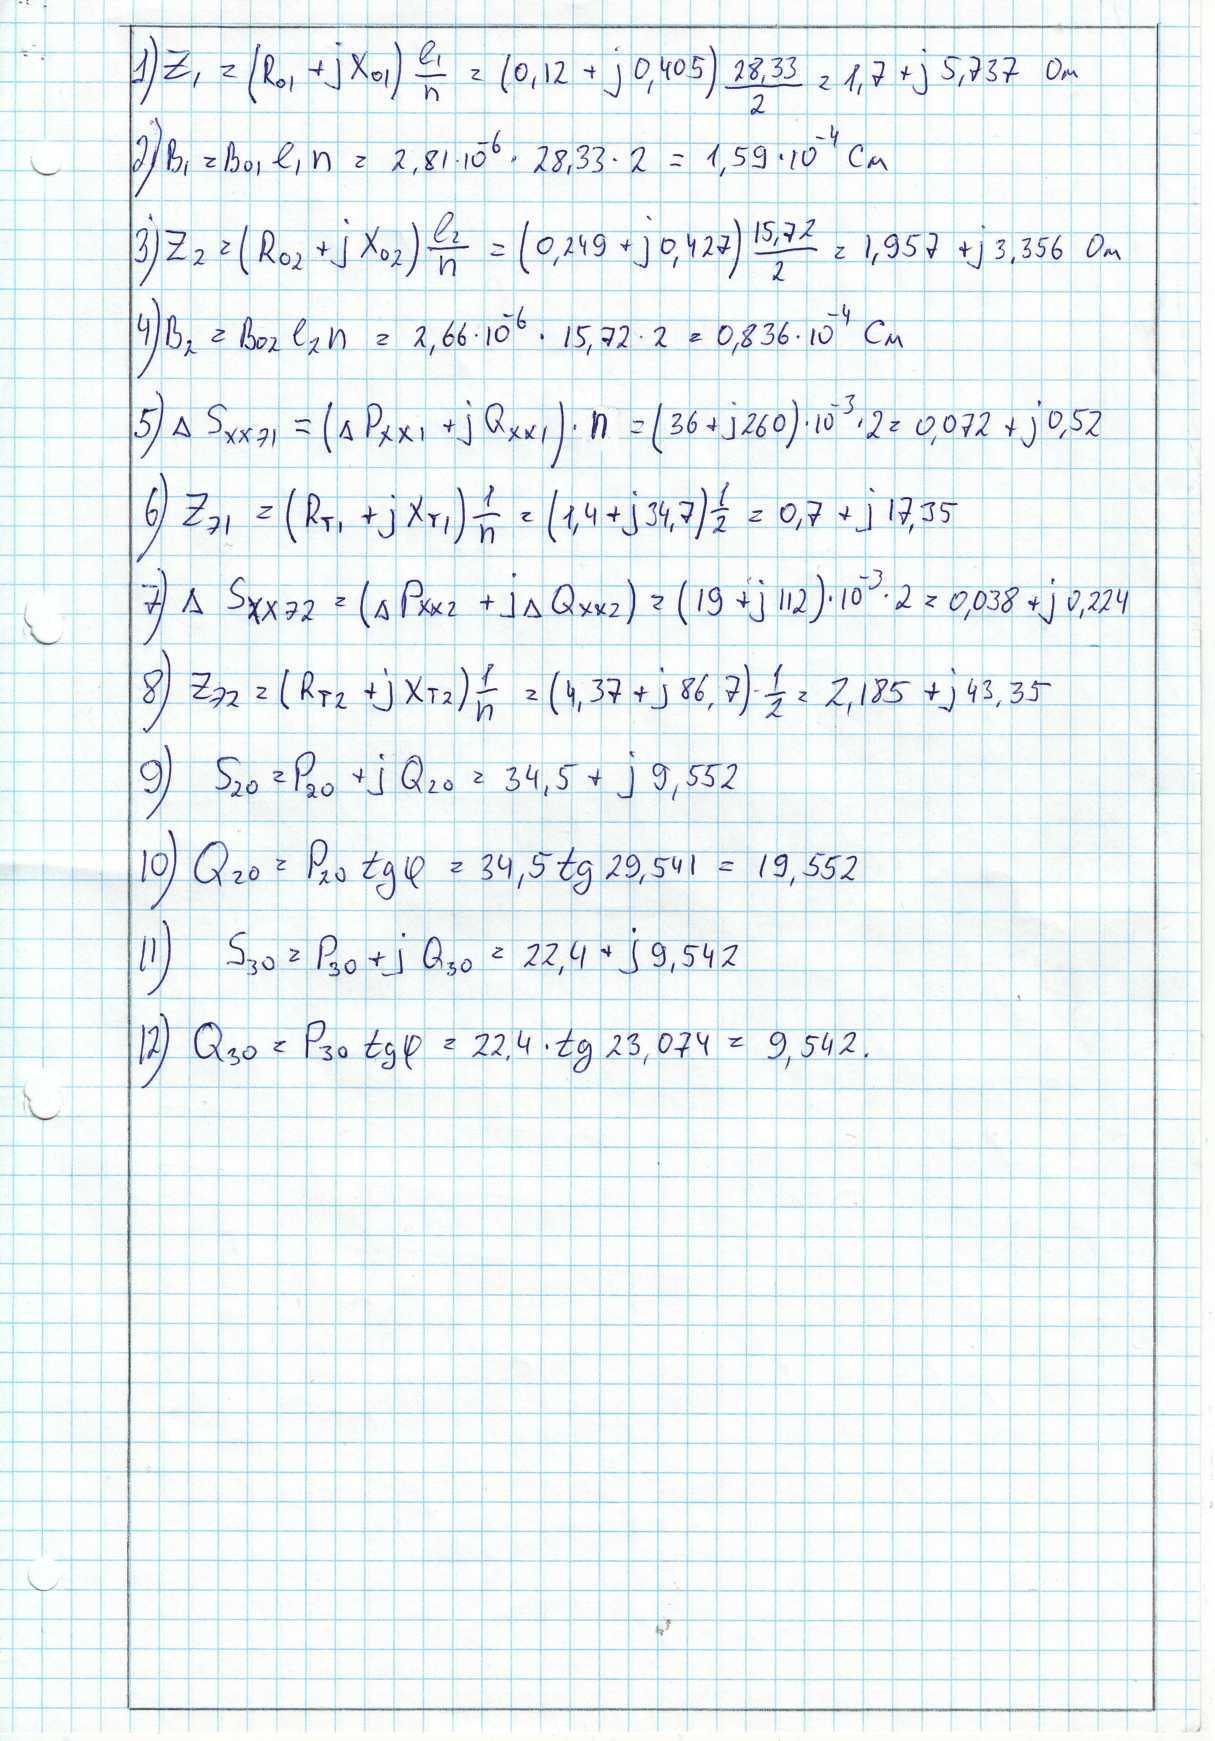 1) Z₁ = (R₀₁ + jX₀₁) l₁/n = (0,12 + j0,405) 28,33/2 = 1,7 + j5,737 Ом
2) B₁ = B₀₁ l₁ n = 2,81·10⁻⁶ · 28,33 · 2 = 1,59·10⁻⁴ См
3) Z₂ = (R₀₂ + jX₀₂) l₂/n = (0,249 + j0,427) 15,72/2 = 1,957 + j3,356 Ом
4) B₂ = B₀₂ l₂ n = 2,66·10⁻⁶ · 15,72 · 2 = 0,836·10⁻⁴ См
5) Δ Sххэ1 = (ΔPхх1 + jQхх1) · n = (36 + j260)·10⁻³·2 = 0,072 + j0,52
6) Zэ1 = (Rт1 + jXт1) 1/n = (1,4 + j34,7) 1/2 = 0,7 + j17,35
7) Δ Sххэ2 = (ΔPхх2 + jΔQхх2) = (19 + j112)·10⁻³·2 = 0,038 + j0,224
8) Zэ2 = (Rт2 + jXт2) 1/n = (4,37 + j86,7)·1/2 = 2,185 + j43,35
9) S₂₀ = P₂₀ + jQ₂₀ = 34,5 + j9,552
10) Q₂₀ = P₂₀ tgφ = 34,5 tg 29,541 = 19,552
11) S₃₀ = P₃₀ + jQ₃₀ = 22,4 + j9,542
12) Q₃₀ = P₃₀ tgφ = 22,4 · tg 23,074 = 9,542.